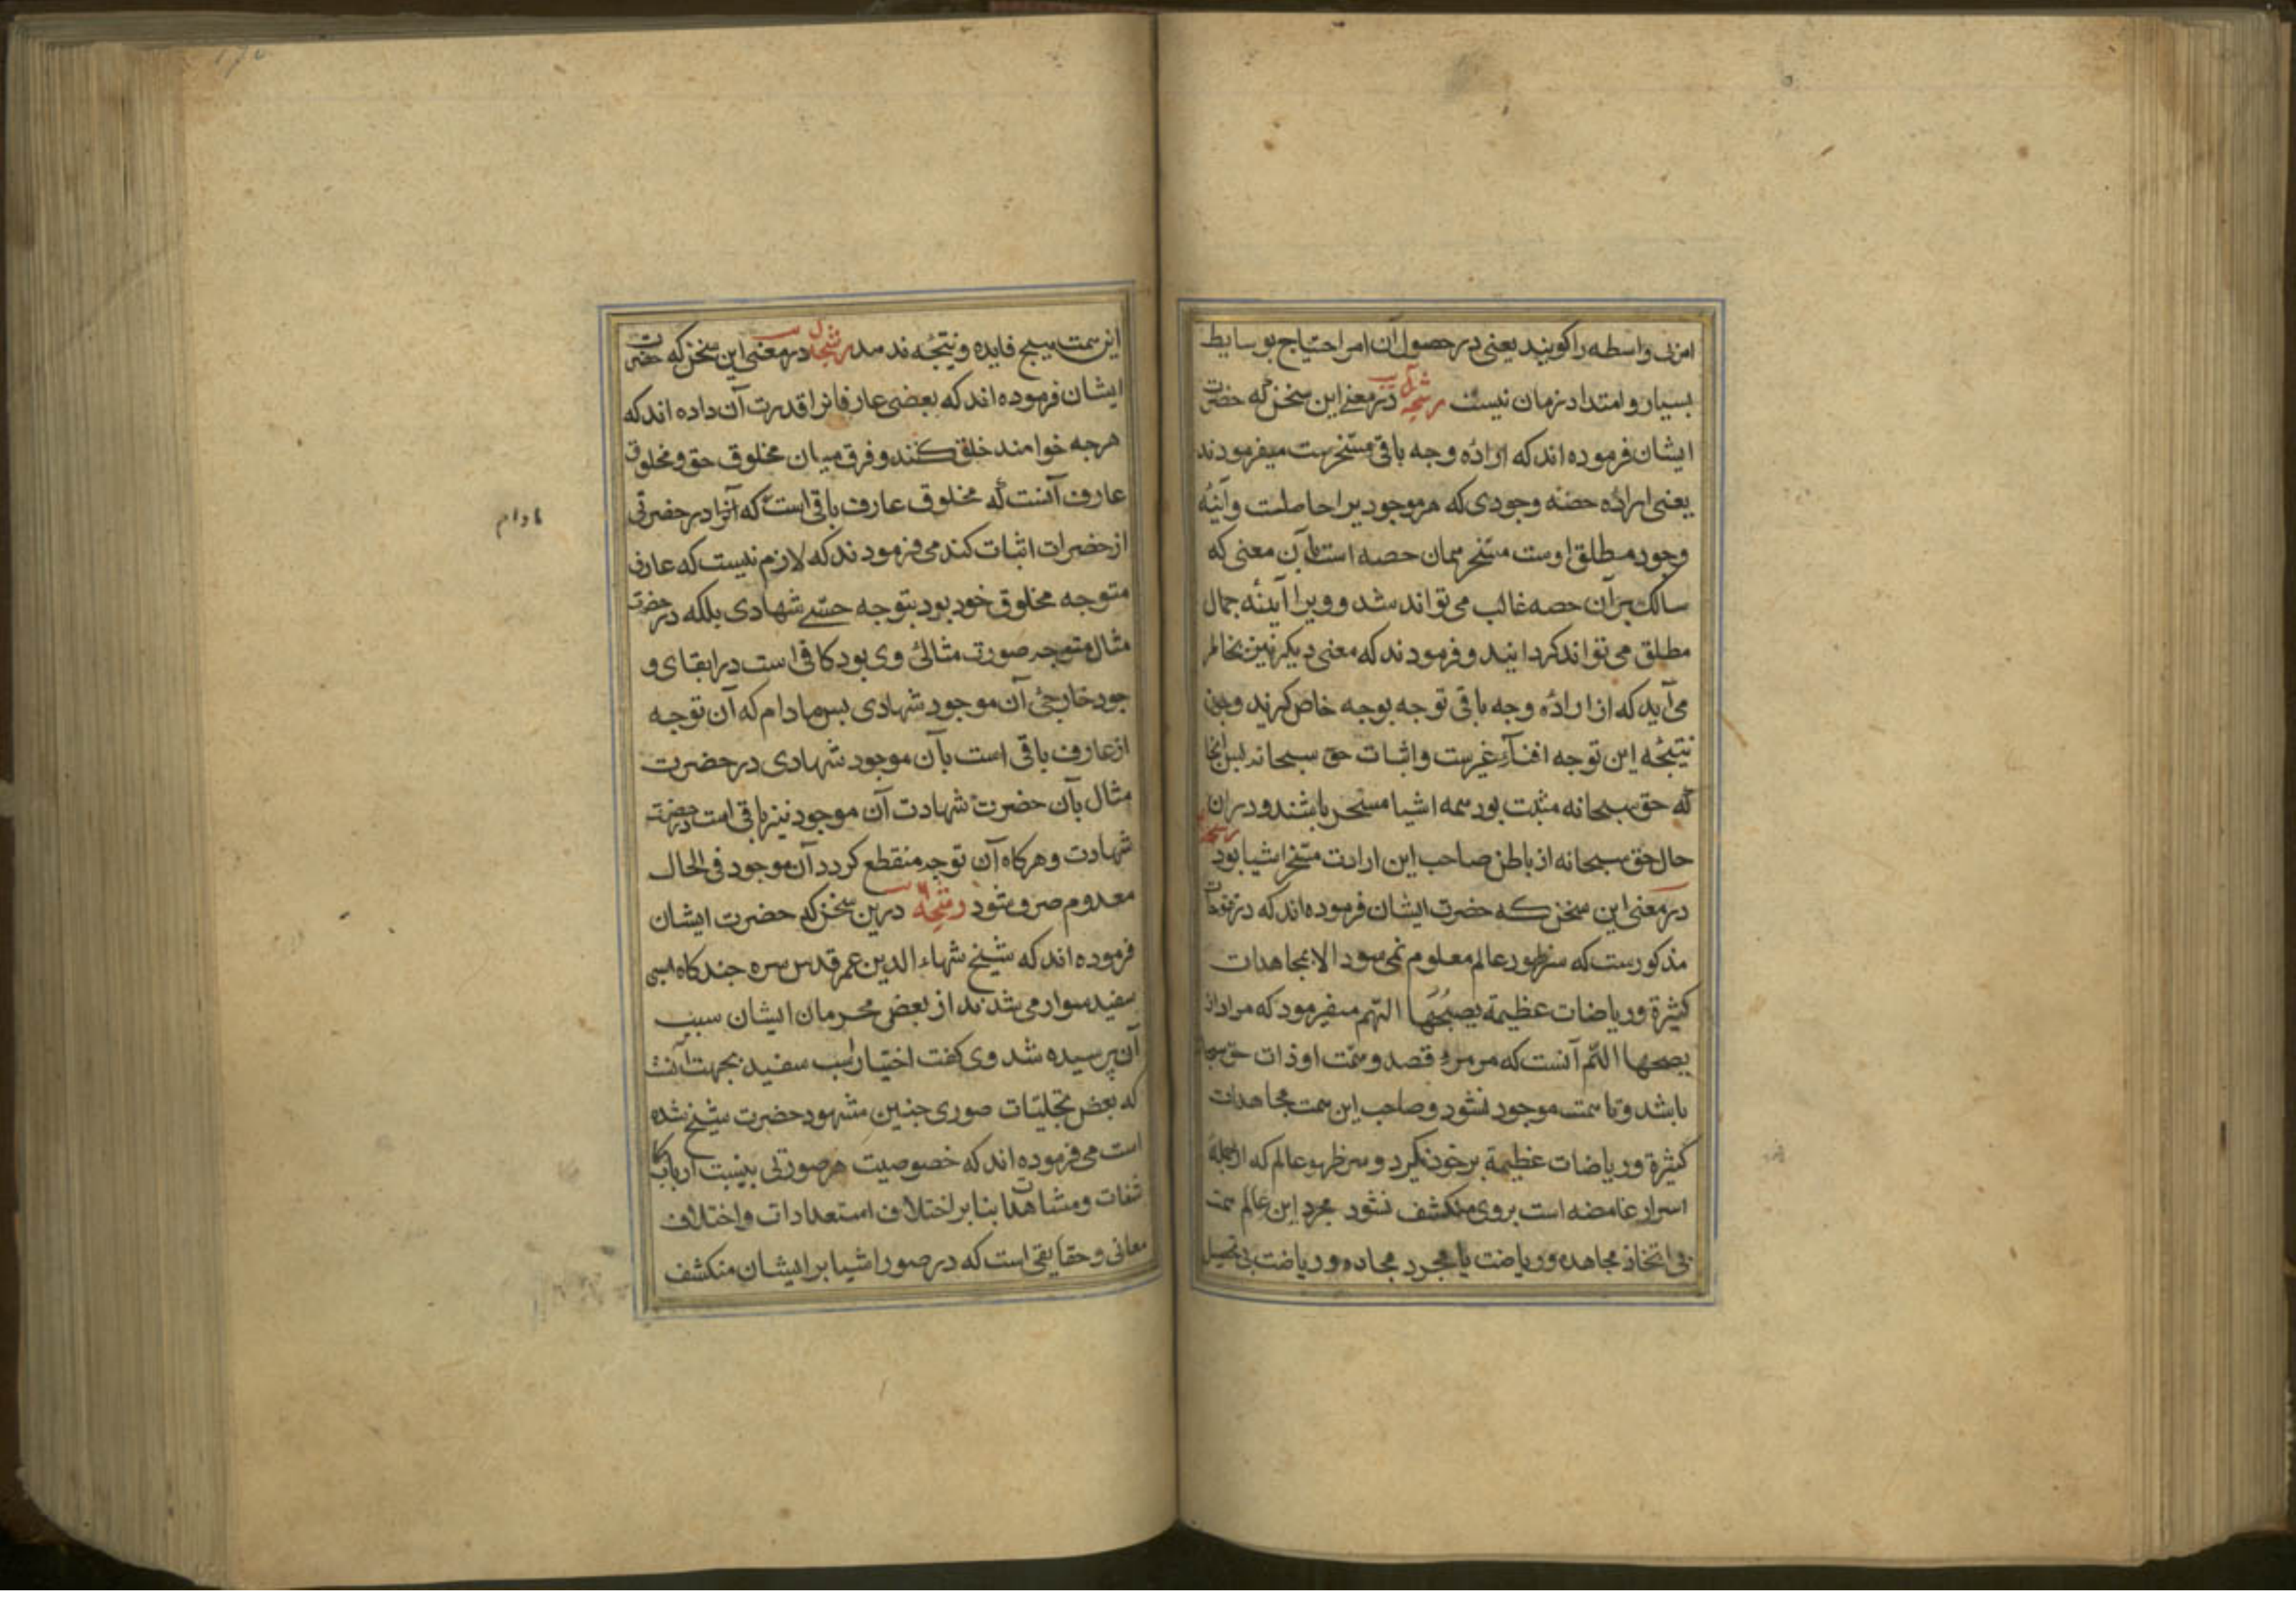 امری واسطه را کویند یعنی در حصول آن امر احتیاج بوسایط
بسیار و امتداد زمان نیست رشحه در معنی این سخن که حضرت
ایشان فرموده اند که اراده وجه باقی مسخرست میفرمودند
یعنی اراده حصه وجودی که هر موجودیرا حاصلست و آینه
وجود مطلق اوست مسخر همان حصه است بآن معنی که
سالک بر آن حصه غالب می تواند شد و ویرا آینه جمال
مطلق می تواند کردانید و فرمودند که معنی دیکر نیز بخاطر
می آید که از اراده وجه باقی توجه بوجه خاص کیرند و چون
نتیجه این توجه افناء غیرست و اثبات حق سبحانه بس آنجا
که حق سبحانه مثبت بود همه اشیا مسخر باشند و در آن
حال حق سبحانه از باطن صاحب این ارادت مسخر اشیا بود رشحه
در معنی این سخن که حضرت ایشان فرموده اند که در فتوحات
مذکورست که سر ظهور عالم معلوم نمی شود الا بمجاهدات
کثیرة و ریاضات عظیمة یصبحها الهمم میفرمود که مراد از
یصحبها الهمم آنست که مر مرد قصد و همت او ذات حق سبحانه
باشد و تا همت موجود نشود و صاحب این همت مجاهدات
کثیرة و ریاضات عظیمة بر خود نکیرد و سر ظهور عالم که از جمله
اسرار غامضه است بر وی منکشف نشود مجرد این عالم همت
بی اتخاذ مجاهده و ریاضت یا مجرد مجاده و ریاضت بی تحصیل
این همت هیچ فایده و نتیجه ندهد رشحه در معنی این سخن که حضرت
ایشان فرموده اند که بعضی عارفانرا قدرت آن داده اند که
هرجه خواهند خلق کنند و فرق میان مخلوق حق و مخلوق
عارف آنست که مخلوق عارف باقی است که آنرا در حضرتی
از حضرات اثبات کند می فرمودند که لازم نیست که عارف
متوجه مخلوق خود بود بتوجه حسی شهادی بلکه در حضرت
مثال متوجه صورت مثالئ وی بود کافی است در ابقای و
جود خارجئ آن موجود شهادی بس مادام که آن توجه
از عارف باقی است بآن موجود شهادی در حضرت
مثال بآن حضرت شهادت آن موجود نیز باقی است در حضرت
شهادت و هرکاه آن توجه منقطع کردد آن موجود فی الحال
معدوم صرف شود رشحه درین سخن که حضرت ایشان
فرموده اند که شیخ شهاء الدین عمر قدس سره جندکاه اسبی
سفید سوار می شدند از بعض محرمان ایشان سبب
آن پرسیده شد وی کفت اختیار اسب سفید بجهت آنست
که بعض تجلیات صوری جنین مشهود حضرت شیخ شده
است می فرموده اند که خصوصیت هر صورتی بنسبت ارباب کا
شفات و مشاهدات بنابر اختلاف استعدادات و اختلاف
معانی و حقایقی است که در صور اشیا بر ایشان منکشف
مادام